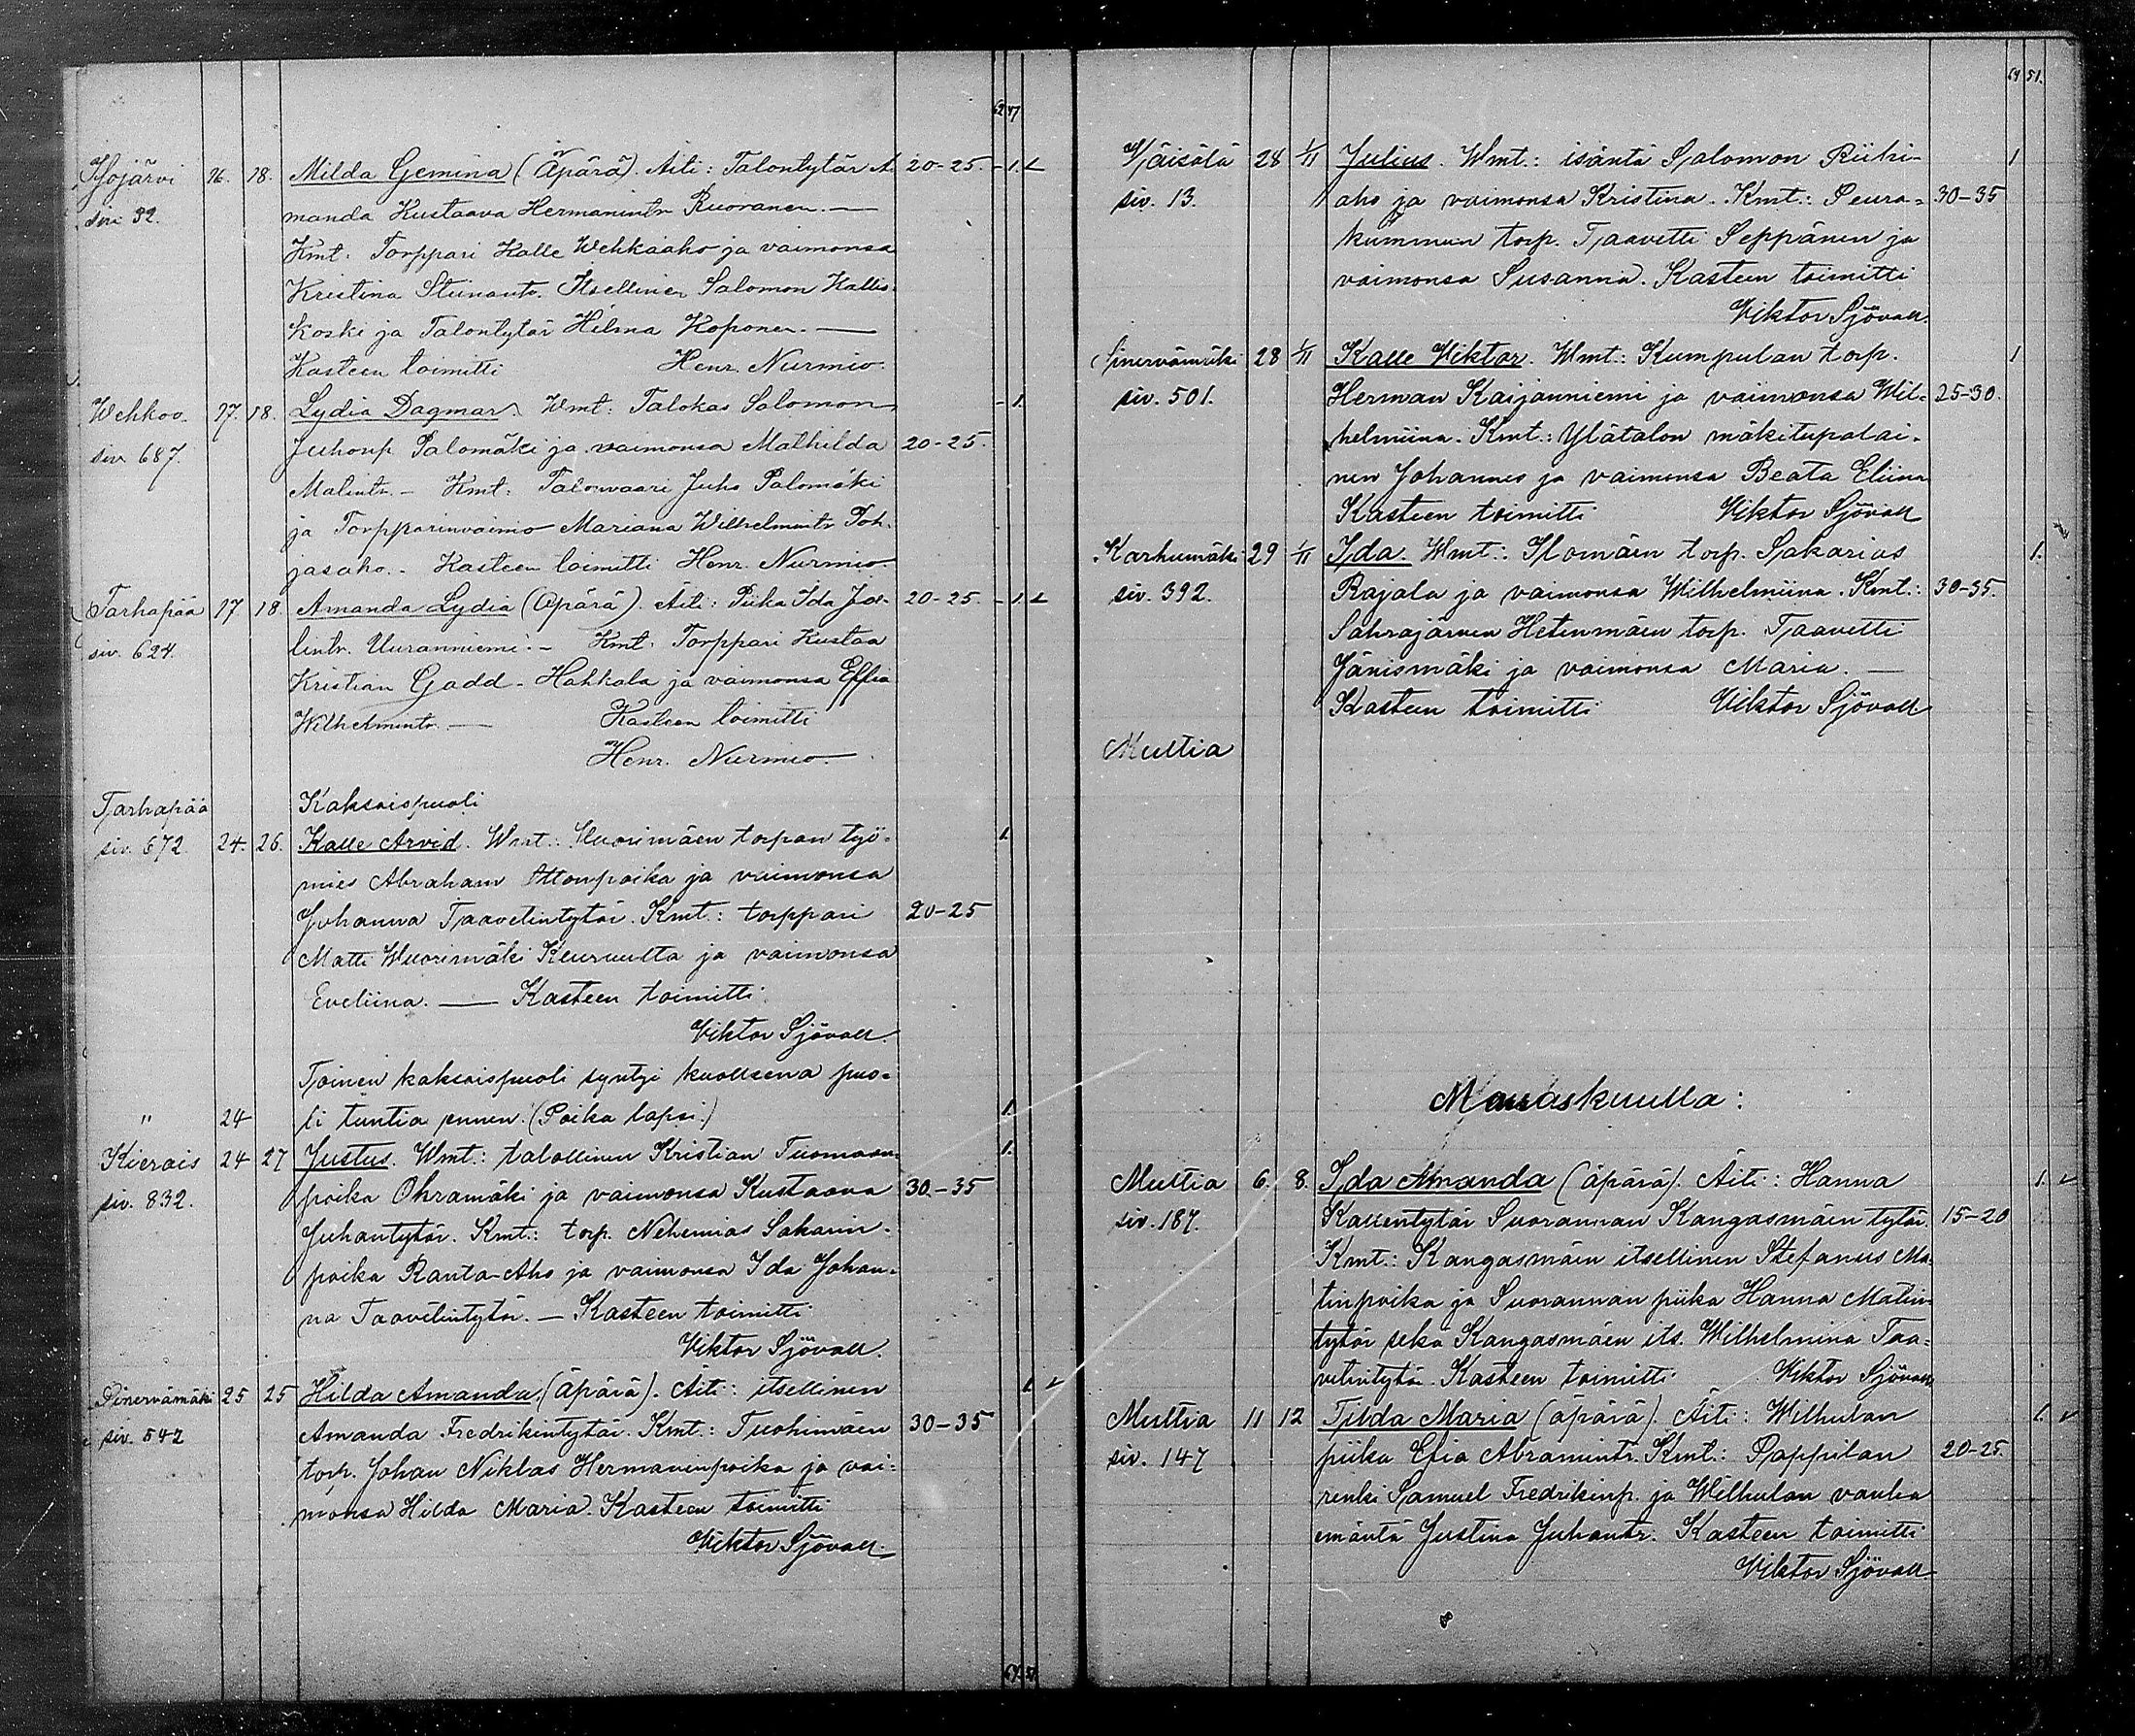 62 47
Hojärvi 16. 18. Milda Gemina (Äpärä). Äiti: Talontytär A- 20-25. - 1.
siv. 32. manda Kustaava Hermanintr. Ruoranen. —
Kmt: Torppari Kalle Wehkaaho ja vaimonsa
Kristina Itsellinen Salomon Kallio-
koski ja Talontytär Hilma Koponen. —
Kasteen toimitti Henr. Nurmio.
Wehkoo. 17. 18. Lydia Dagmar. Wmt: Talokas Salomon - 1.
siv. 687. Juhonp. Palomäki ja vaimonsa Mathilda 20-25.
Matintr. - Kmt: Talonvaari Juho Palomäki
ja Torpparinvaimo Mariana Wilhelmintr. Poh-
jasaho. - Kasteen toimitti Henr. Nurmio.
Tarhapää 17 18. Amanda Lydia (Äpärä). Äiti: Piika Ida Joe- 20-25. - 1.
siv. 624. lintr. Uuranniemi. - Kmt: Torppari Kustaa
Kristian Gadd-Hahkala ja vaimonsa Effia
Wilhelmintr. — Kasteen toimitti
Henr. Nurmio.
Tarhapää Kaksoispuoli
siv. 672. 24. 26. Kalle Arvid. Wmt.: Wuorimäen torpan työ- 1.
mies Abraham Ottonpoika ja vaimonsa
Johanna Taavetintytär. Kmt.: torppari 20-25
Matti Wuorimäki Keuruulta ja vaimonsa
Eveliina. — Kasteen toimitti
Viktor Sjövall.
Toinen kaksoispuoli syntyi kuolleena puo-
" 24 li tuntia ennen. (Poika lapsi.) 1.
Kierais 24 27 Justus. Wmt.: talollinen Kristian Tuomaan- 1.
siv. 832. poika Ohramäki ja vaimonsa Kustaava 30-35
Juhantytär. Kmt.: torp. Nehemias Sakarin-
poika Ranta-Aho ja vaimonsa Ida Johan-
na Taavetintytär. — Kasteen toimitti
Viktor Sjövall.
Sinervämäki 25 25 Hilda Amanda (äpärä). Äiti: itsellinen 1.
siv. 542 Amanda Fredrikintytär. Kmt.: Tuohimäen 30-35
torp. Johan Niklas Hermaninpoika ja vai-
monsa Hilda Maria. Kasteen toimitti
Viktor Sjövall.
64 51.
64 51.
Väisälä 28 1/11 Julius. Wmt.: isäntä Salomon Riihi- 1
siv. 13. aho ja vaimonsa Kristina. Kmt.: Peura- 30-35
kummun torp. Taavetti Seppänen ja
vaimonsa Susanna. Kasteen toimitti
Viktor Sjövall.
Sinervämäki 28 1/11 Kalle Viktor. Wmt.: Kumpulan torp. 1
siv. 501. Herman Kaijanniemi ja vaimonsa Wil- 25-30.
helmiina. Kmt.: Ylätalon mäkitupalai-
nen Johannes ja vaimonsa Beata Eliina
Kasteen toimitti Viktor Sjövall
Karhumäki 29 1/11 Ida. Wmt.: Ilomäen torp. Sakarias 1.
siv. 392. Rajala ja vaimonsa Wilhelmiina. Kmt.: 30-35.
Sahrajärven Hetenmäen torp. Taavetti
Jänismäki ja vaimonsa Maria. —
Kasteen toimitti Viktor Sjövall
Multia
Marraskuulla:
Multia 6. 8. Ida Amanda (äpärä). Äiti: Hanna 1.
siv. 187. Kallentytär Suorannan Kangasmäen tytär. 15-20
Kmt.: Kangasmäen itsellinen Stefanus Ma-
tinpoika ja Suorannan piika Hanna Matin-
tytär sekä Kangasmäen its. Wilhelmina Taa-
vetintytär. Kasteen toimitti Viktor Sjövall
Multia 11 12 Tilda Maria (äpärä). Äiti: Wilhulan 1.
siv. 147 piika Efia Abramintr. Kmt.: Pappilan 20-25.
renki Samuel Fredrikinp. ja Wilhulan vanha
emäntä Justina Juhantr. Kasteen toimitti
Viktor Sjövall